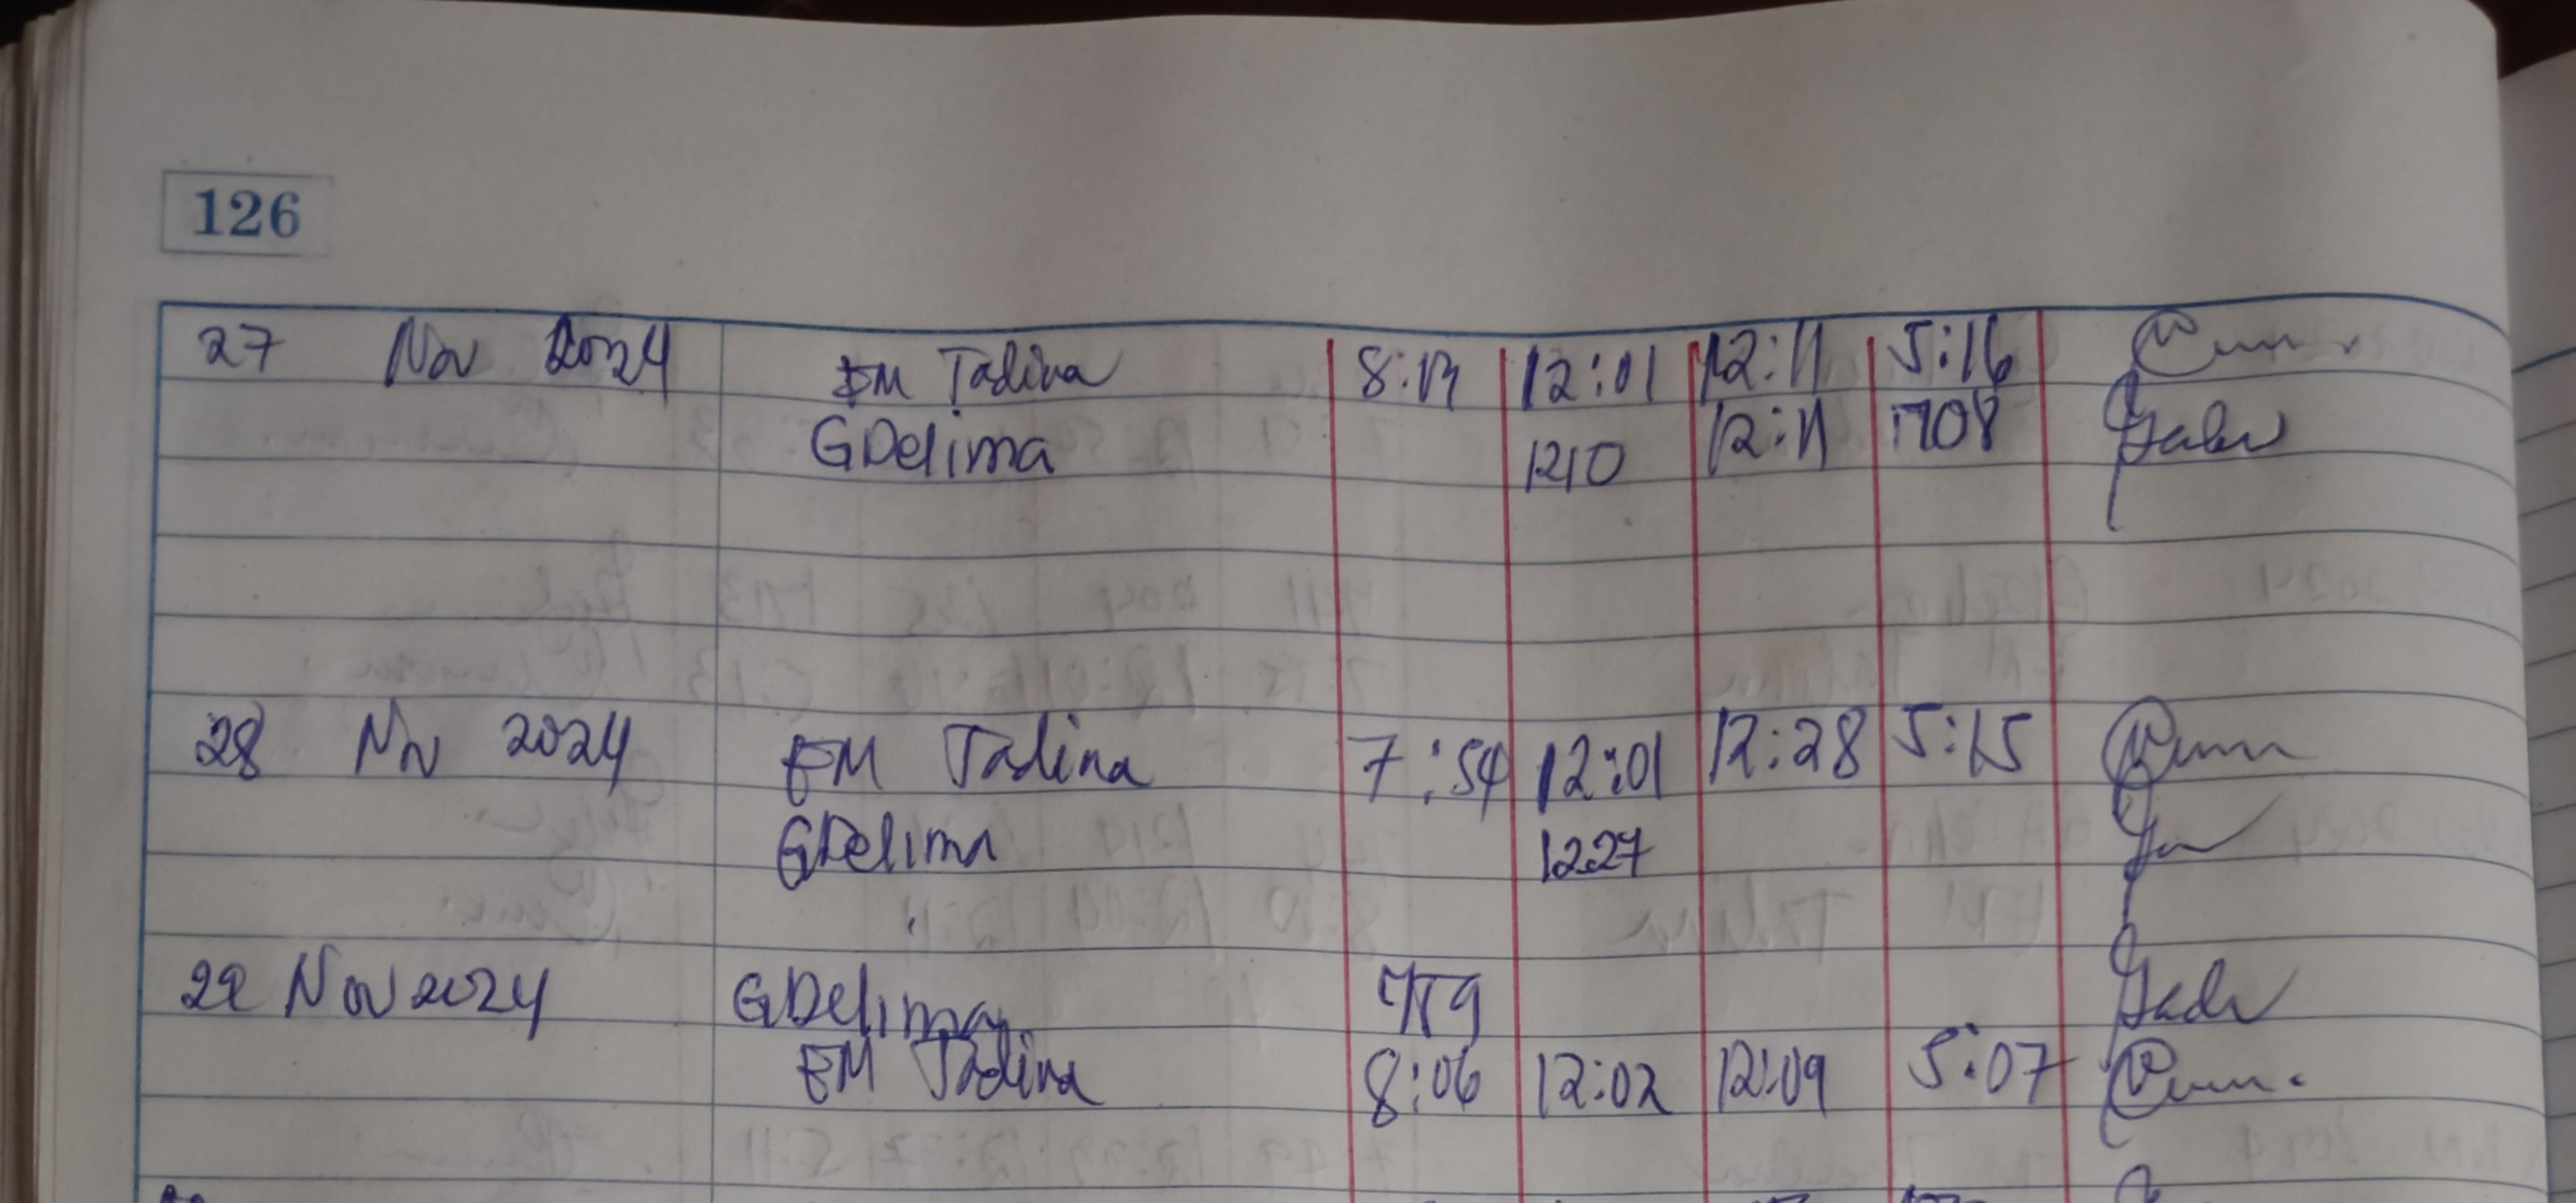 126
27 Nov 2024 EM Tadina 8:13 12:01 12:11 5:16
GDelima 1210 12:11 1708
28 Nov 2024 EM Tadina 7:54 12:01 12:28 5:15
GDelima 1227
29 Nov 2024 GDelima 759
EM Tadina 8:06 12:02 12:09 5:07